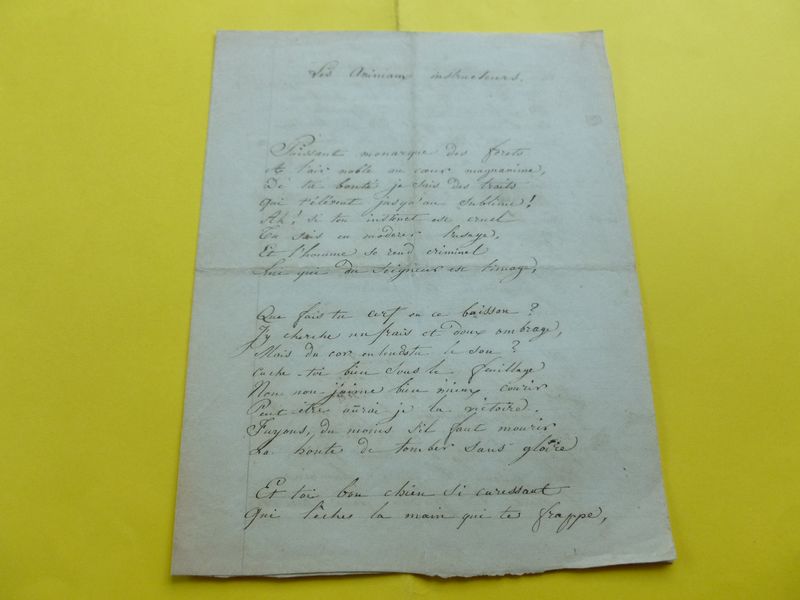 Les Animaux instructeurs.
Puissant monarque des forets
A l'air noble au cœur magnanime,
De ta bonté je sais des traits
Qui t'élèvent jusqu'au sublime!
Ah! si ton instinct est cruel
Tu sais en modérer l'usage,
Et l'homme se rend criminel
Lui qui du Seigneur est l'image,
Que fais tu cerf en ce buisson?
J'y cherche un frais et doux ombrage,
Mais du cor entends tu le son?
Cache-toi bien sous le feuillage
Non non j'aime bien mieux courir
Peut être aurai je la victoire.
Fuyons, du moins s'il faut mourir
La honte de tomber sans gloire
Et toi bon chien si caressant
Qui lêches la main qui te frappe,